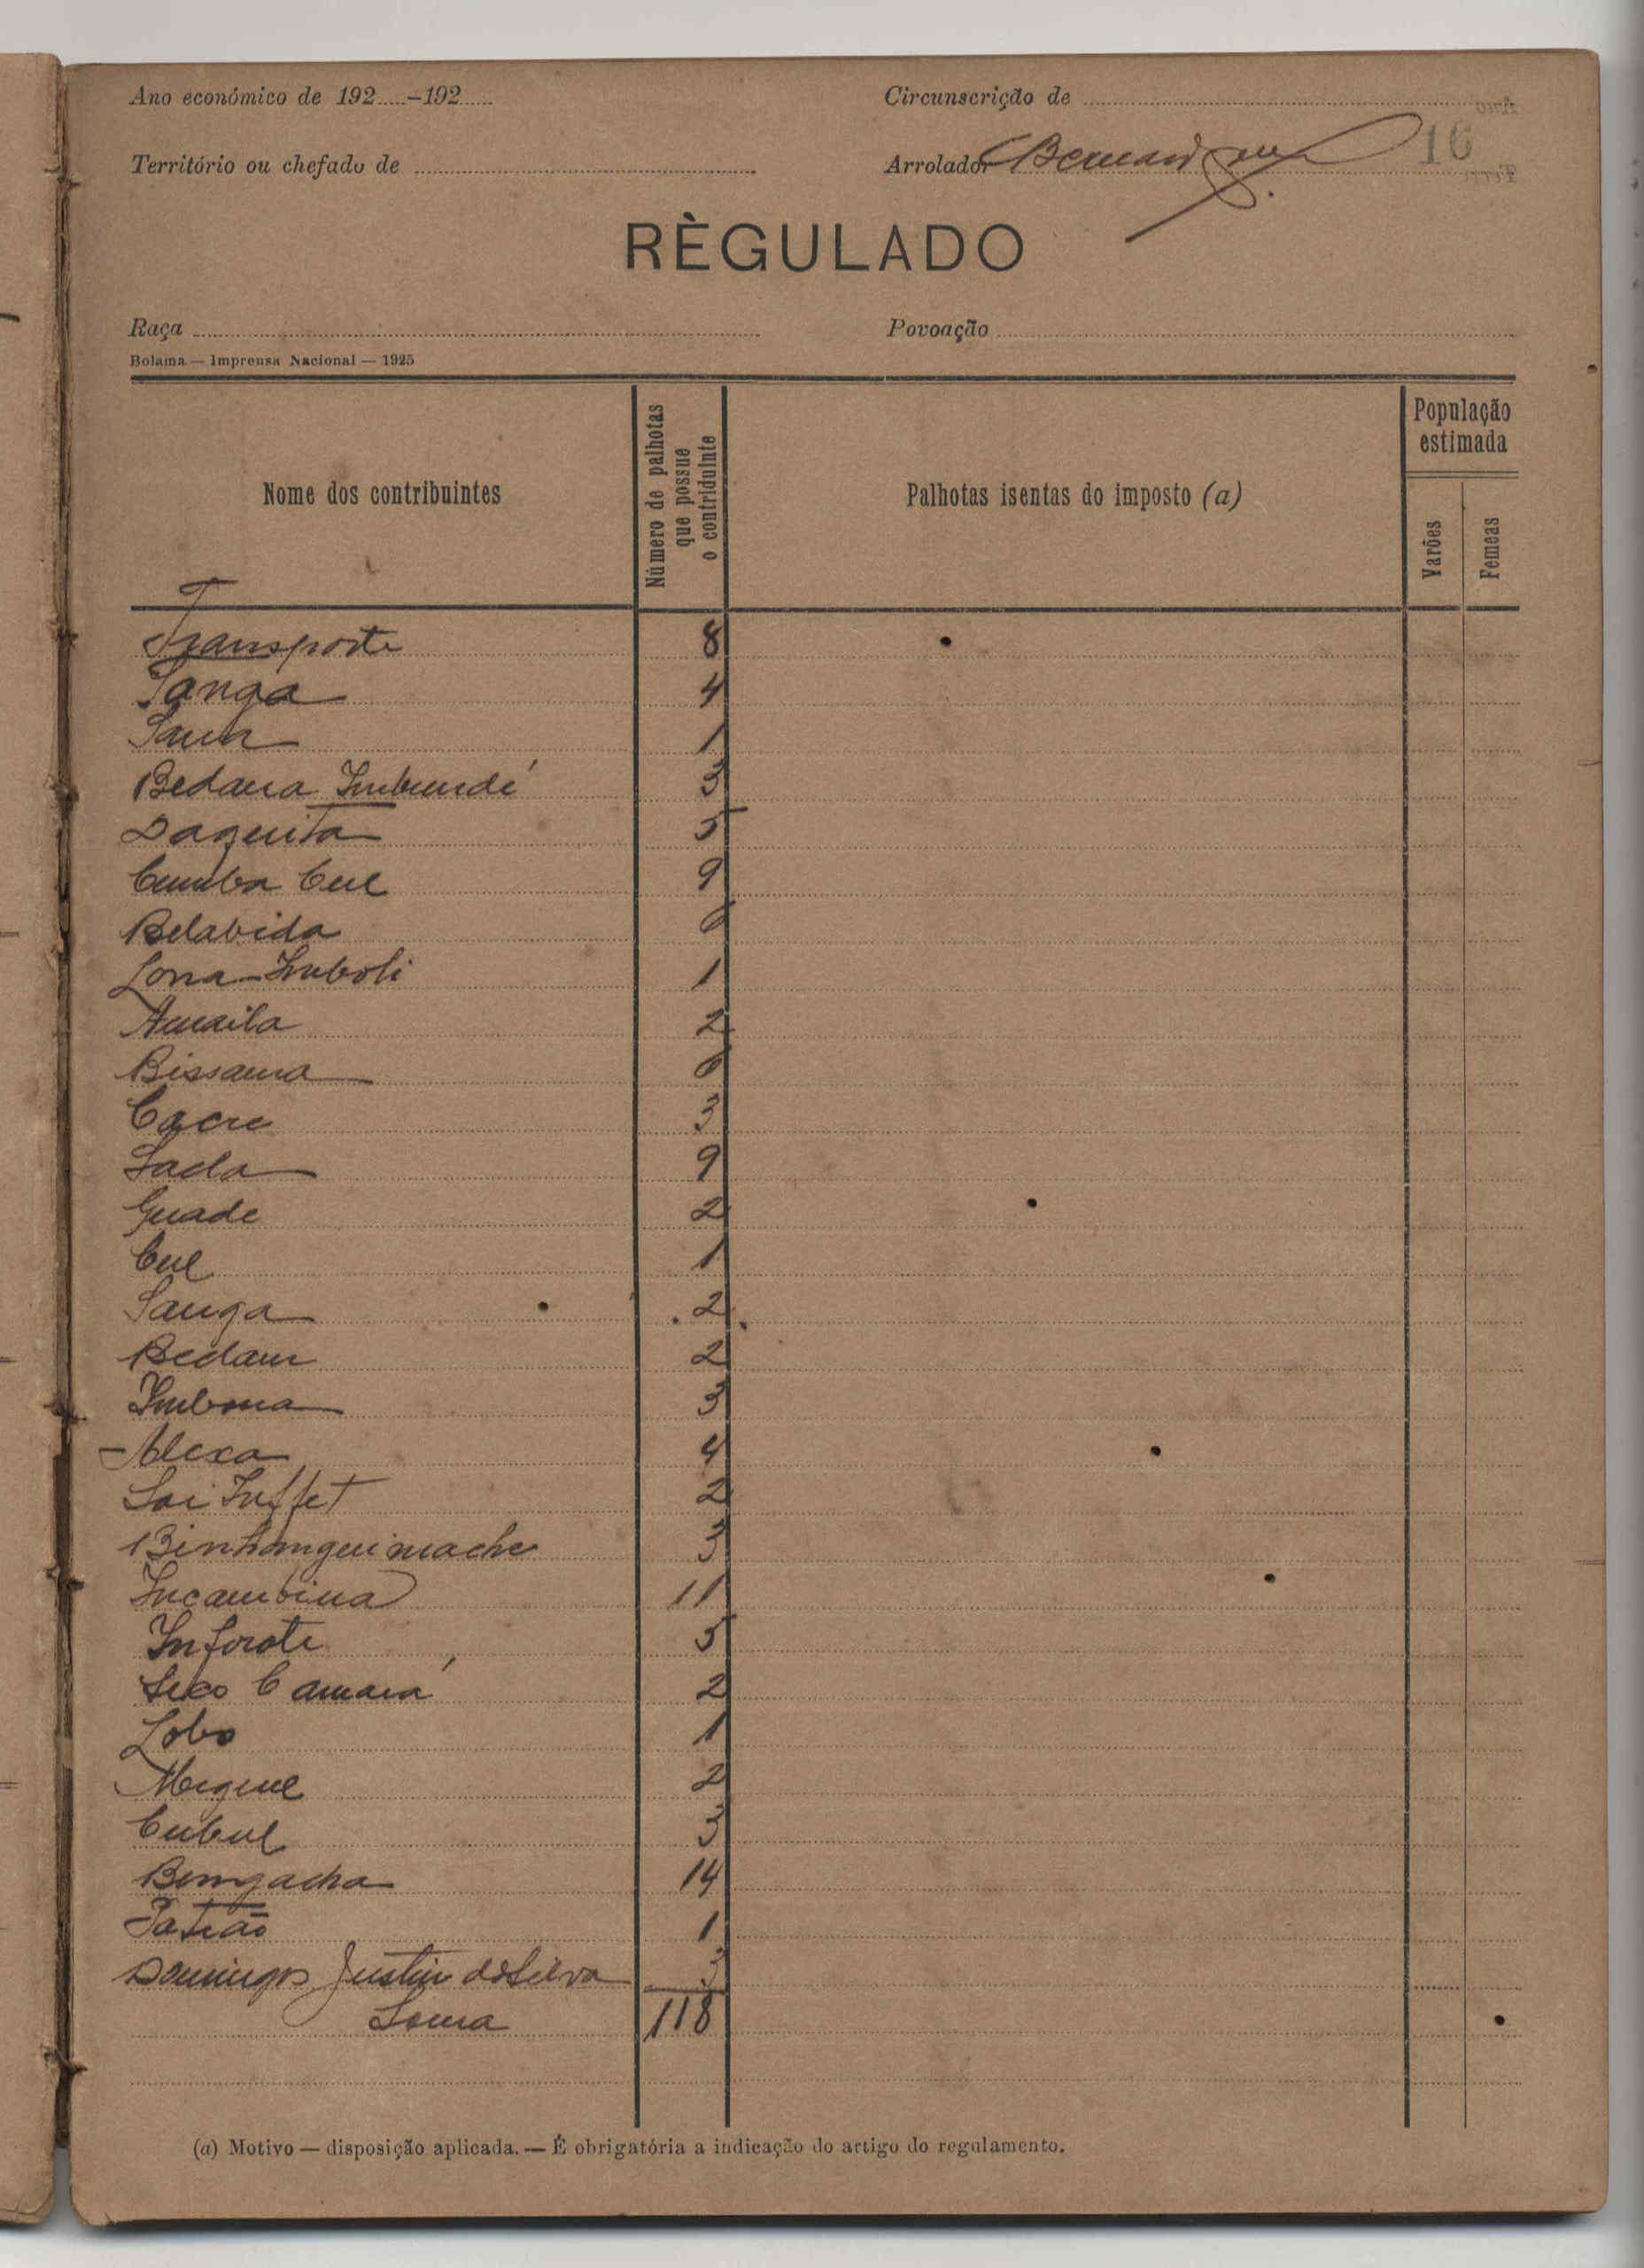 Ano económico de 192.....–192.....
Circunscrição de
Território ou chefado de
Arrolador
16
RÈGULADO
Raça
Povoação
Bolama — Imprensa Nacional — 1925
Nome dos contribuintes
Número de palhotas que possue o contriduinte
Palhotas isentas do imposto (a)
População estimada
Varões
Femeas
Transporte 8
Sanga 4
Saun 1
Bedana Imbundé 3
Daquita 5
Cumba Cul 9
Belabida 6
Lona Imboli 1
Amaila 2
Bissama 6
Cacre 3
Sada 9
Guade 2
Cul 1
Sanga 2
Bedam 2
Imbona 3
Alexa 4
Sai Fuffet 2
Binhanguimache 3
Incambina 11
Inforote 5
Seco Camará 2
Lobo 1
Megue 2
Cubul 3
Bemgacha 14
Patrão 1
Domingos Justin da Silva 3
Soma 118
(a) Motivo — disposição aplicada. — É obrigatória a indicação do artigo do regulamento.